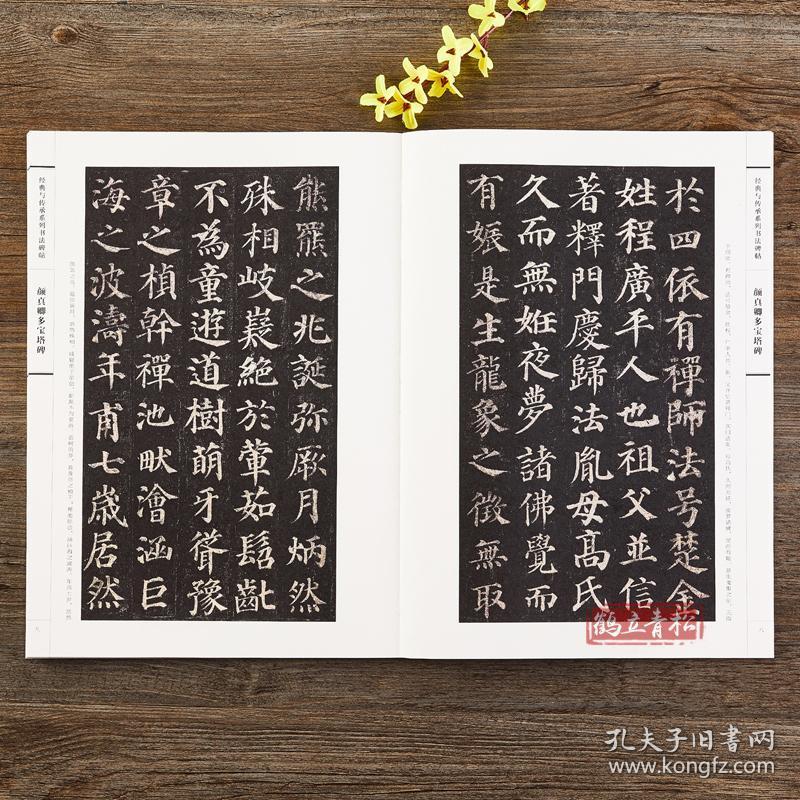 於四依有禪師法号楚金
姓程廣平人也祖父並信
著釋門慶歸法胤母高氏
久而無姙夜夢諸佛覺而
有娠是生龍象之徵無取
熊羆之兆誕弥厥月炳然
殊相岐嶷絶於葷茹髫齓
不為童遊道樹萌牙聳豫
章之楨幹禪池畎澮涵巨
海之波濤年甫七歳居然
经典与传承系列书法碑帖
颜真卿多宝塔碑
八
经典与传承系列书法碑帖
颜真卿多宝塔碑
八
鹤立青松
孔夫子旧书网
www.kongfz.com